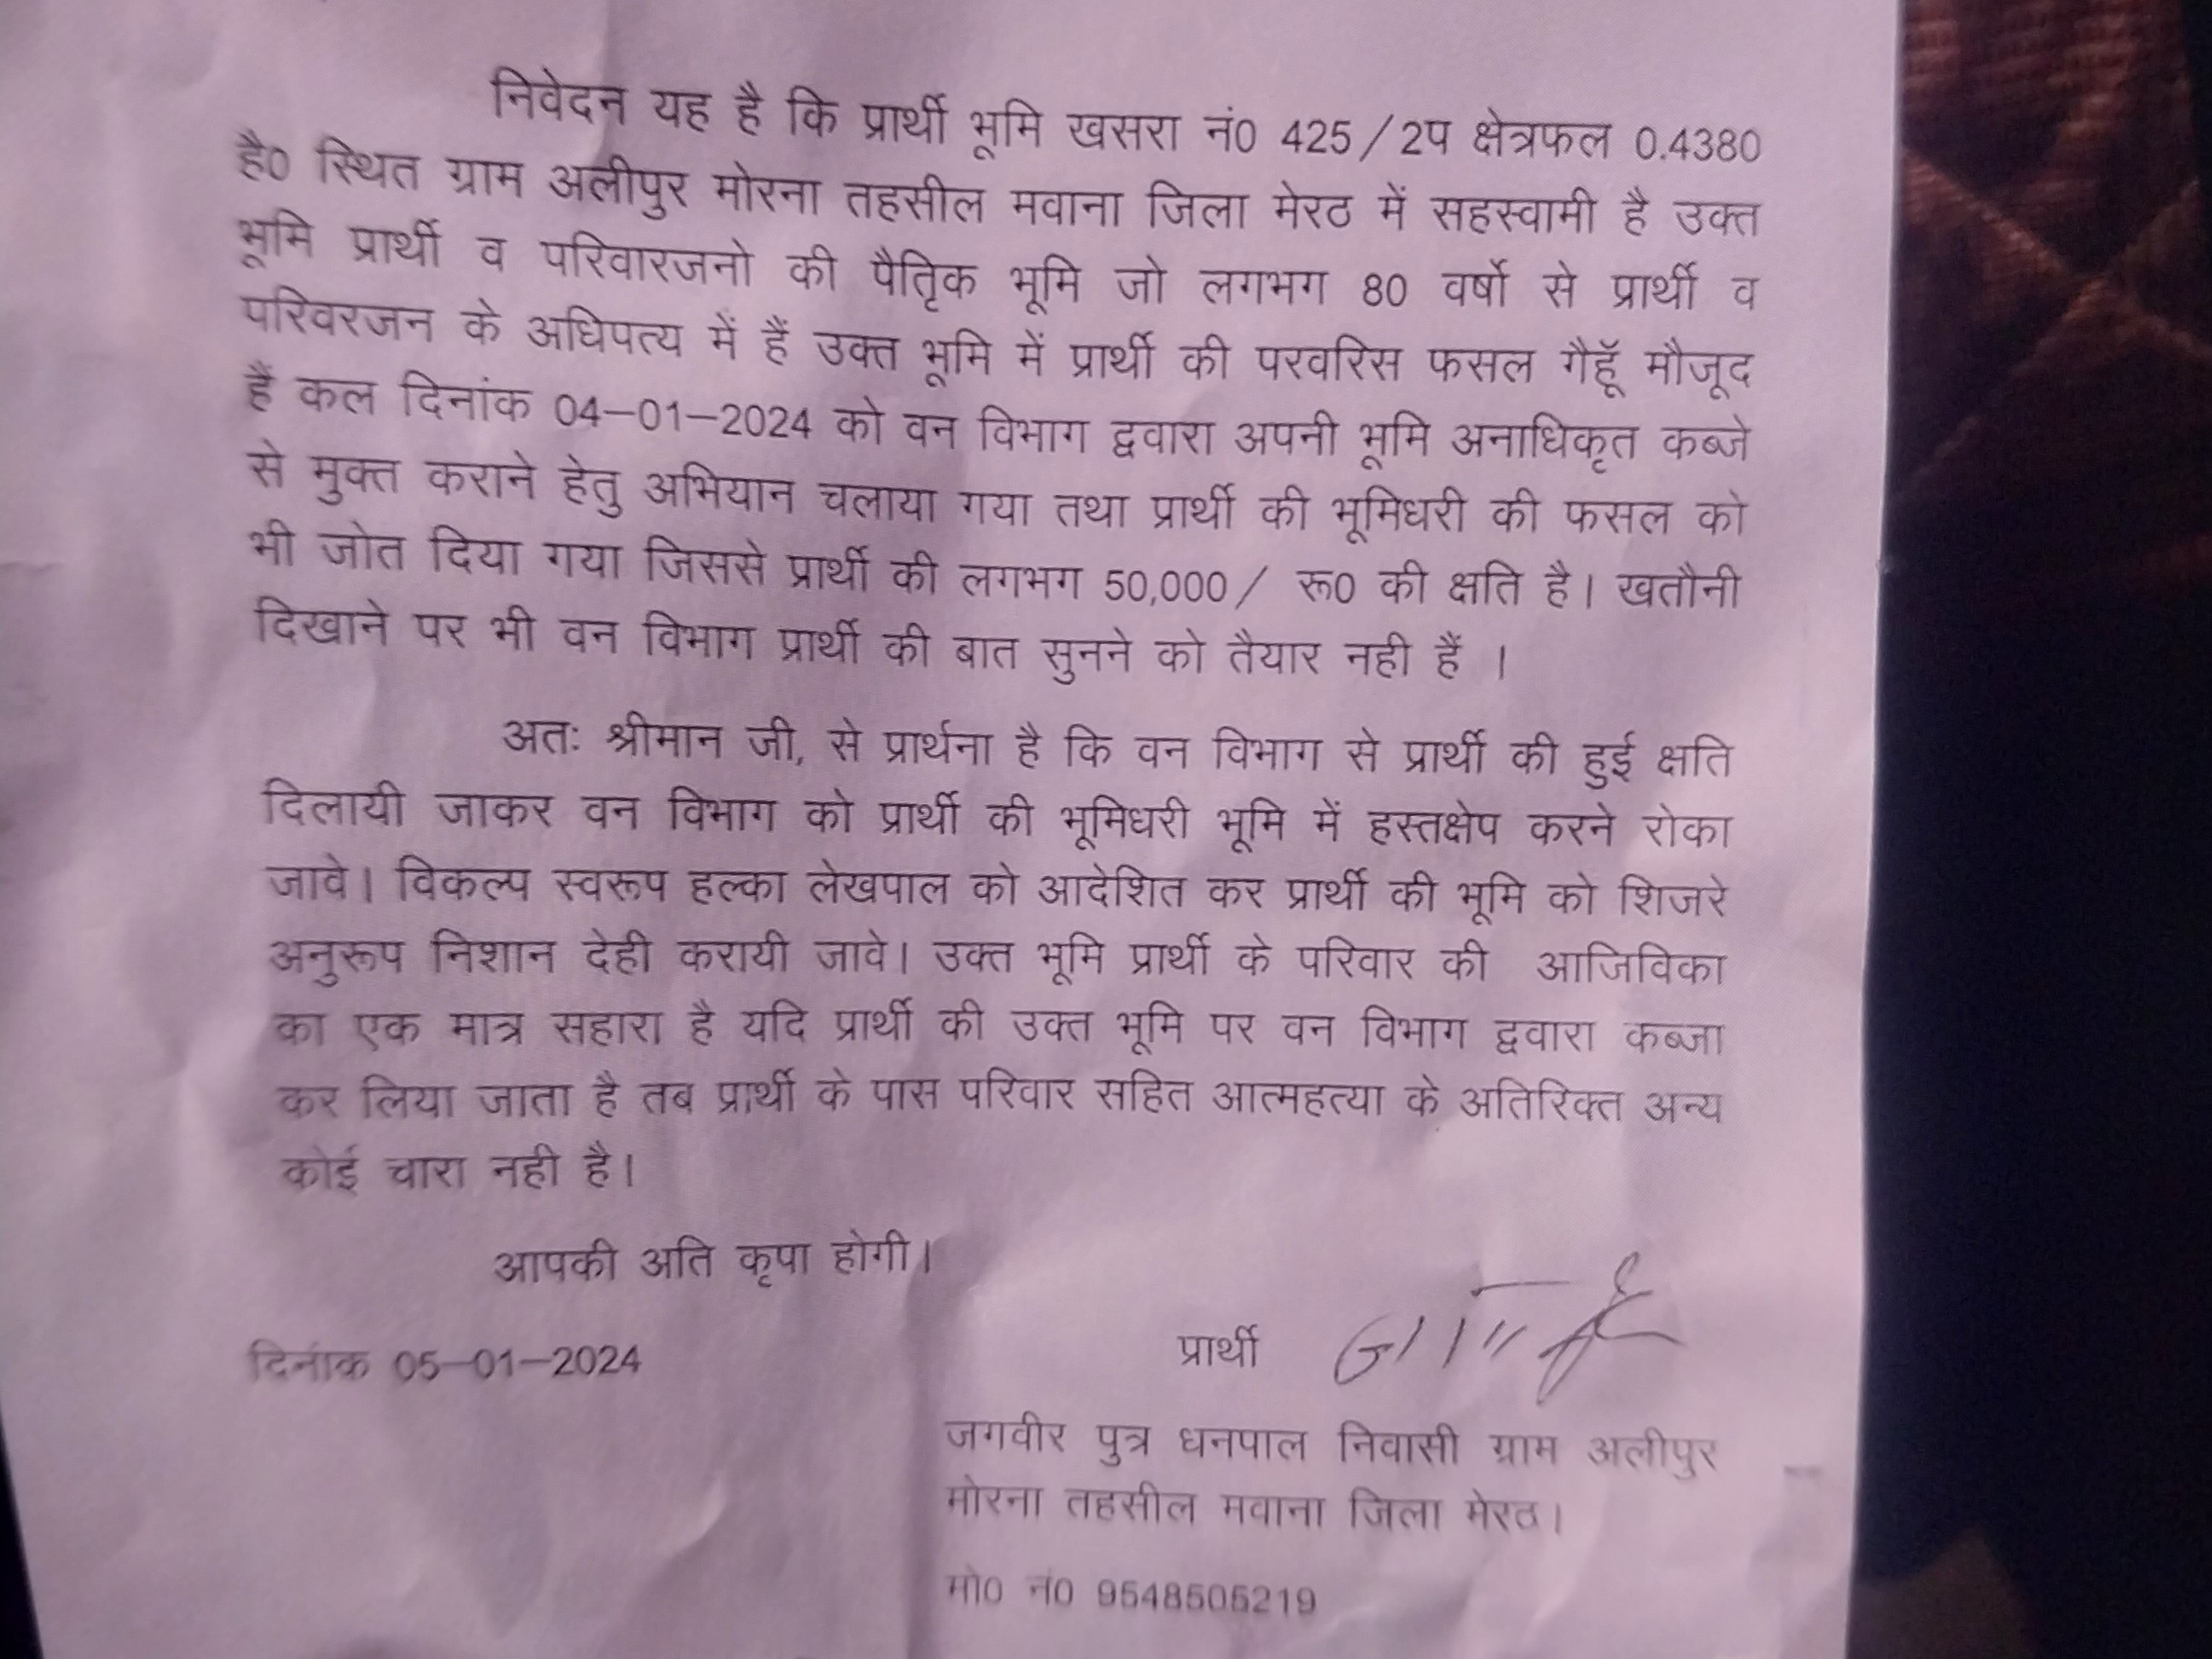 निवेदन यह है कि प्रार्थी भूमि खसरा नं0 425/2प क्षेत्रफल 0.4380
है0 स्थित ग्राम अलीपुर मोरना तहसील मवाना जिला मेरठ में सहस्वामी है उक्त
भूमि प्रार्थी व परिवारजनो की पैतृिक भूमि जो लगभग 80 वर्षो से प्रार्थी व
परिवरजन के अधिपत्य में हैं उक्त भूमि में प्रार्थी की परवरिस फसल गैहूॅ मौजूद
हैं कल दिनांक 04-01-2024 को वन विभाग द्ववारा अपनी भूमि अनाधिकृत कब्जे
से मुक्त कराने हेतु अभियान चलाया गया तथा प्रार्थी की भूमिधरी की फसल को
भी जोत दिया गया जिससे प्रार्थी की लगभग 50,000/ रू0 की क्षति है। खतौनी
दिखाने पर भी वन विभाग प्रार्थी की बात सुनने को तैयार नही हैं ।
अतः श्रीमान जी, से प्रार्थना है कि वन विभाग से प्रार्थी की हुई क्षति
दिलायी जाकर वन विभाग को प्रार्थी की भूमिधरी भूमि में हस्तक्षेप करने रोका
जावे। विकल्प स्वरूप हल्का लेखपाल को आदेशित कर प्रार्थी की भूमि को शिजरे
अनुरूप निशान देही करायी जावे। उक्त भूमि प्रार्थी के परिवार की आजिविका
का एक मात्र सहारा है यदि प्रार्थी की उक्त भूमि पर वन विभाग द्ववारा कब्जा
कर लिया जाता है तब प्रार्थी के पास परिवार सहित आत्महत्या के अतिरिक्त अन्य
कोई चारा नही है।
आपकी अति कृपा होगी।
दिनांक 05-01-2024
प्रार्थी
जगवीर पुत्र धनपाल निवासी ग्राम अलीपुर
मोरना तहसील मवाना जिला मेरठ।
मो0 नं0 9548505219